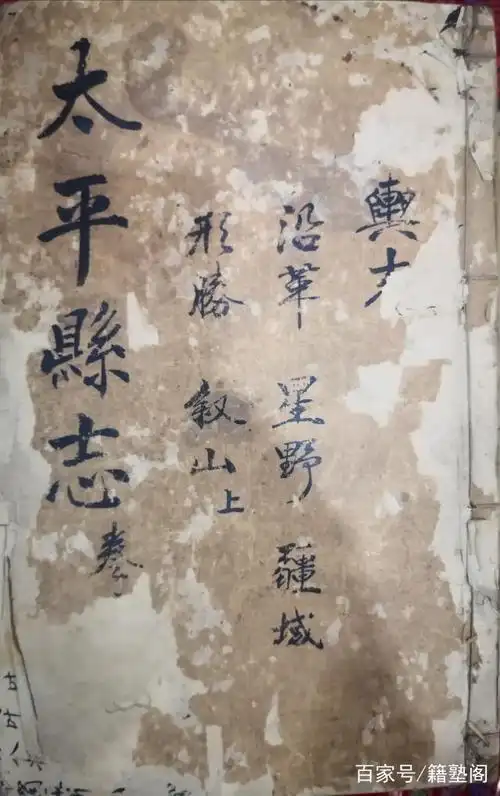 輿
沿革 星野 疆域
形勝 叙山上
太平縣志
百家号/籍塾阁